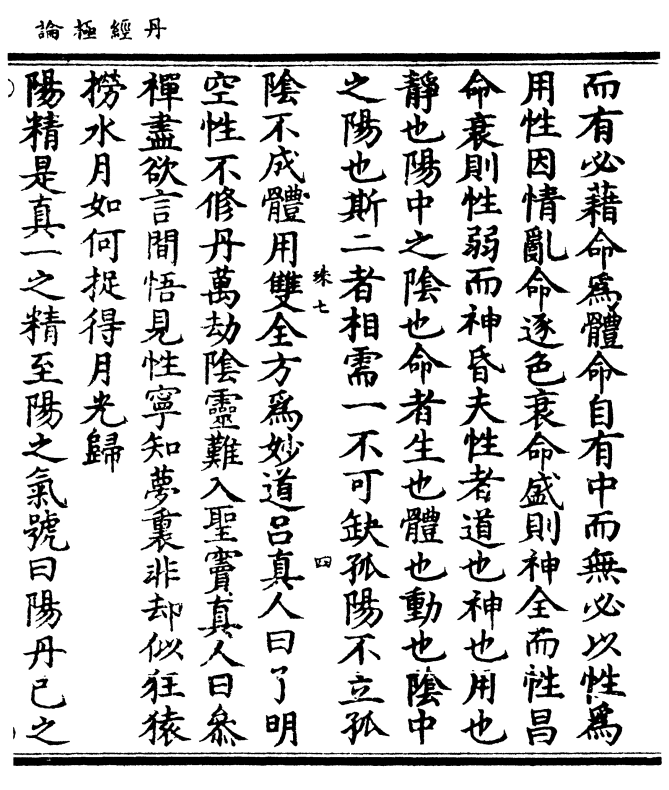 丹經極論
而有必藉命爲體命自有中而無必以性爲
用性因情亂命逐色衰命盛則神全而性昌
命衰則性弱而神昏夫性者道也神也用也
靜也陽中之陰也命者生也體也動也陰中
之陽也斯二者相需一不可缺孤陽不立孤
珠七
四
陰不成體用雙全方爲妙道呂真人曰了明
空性不修丹萬劫陰靈難入聖竇真人曰叅
禪盡欲言間悟見性寧知夢裏非却似狂猿
撈水月如何捉得月光歸
陽精是真一之精至陽之氣號曰陽丹已之